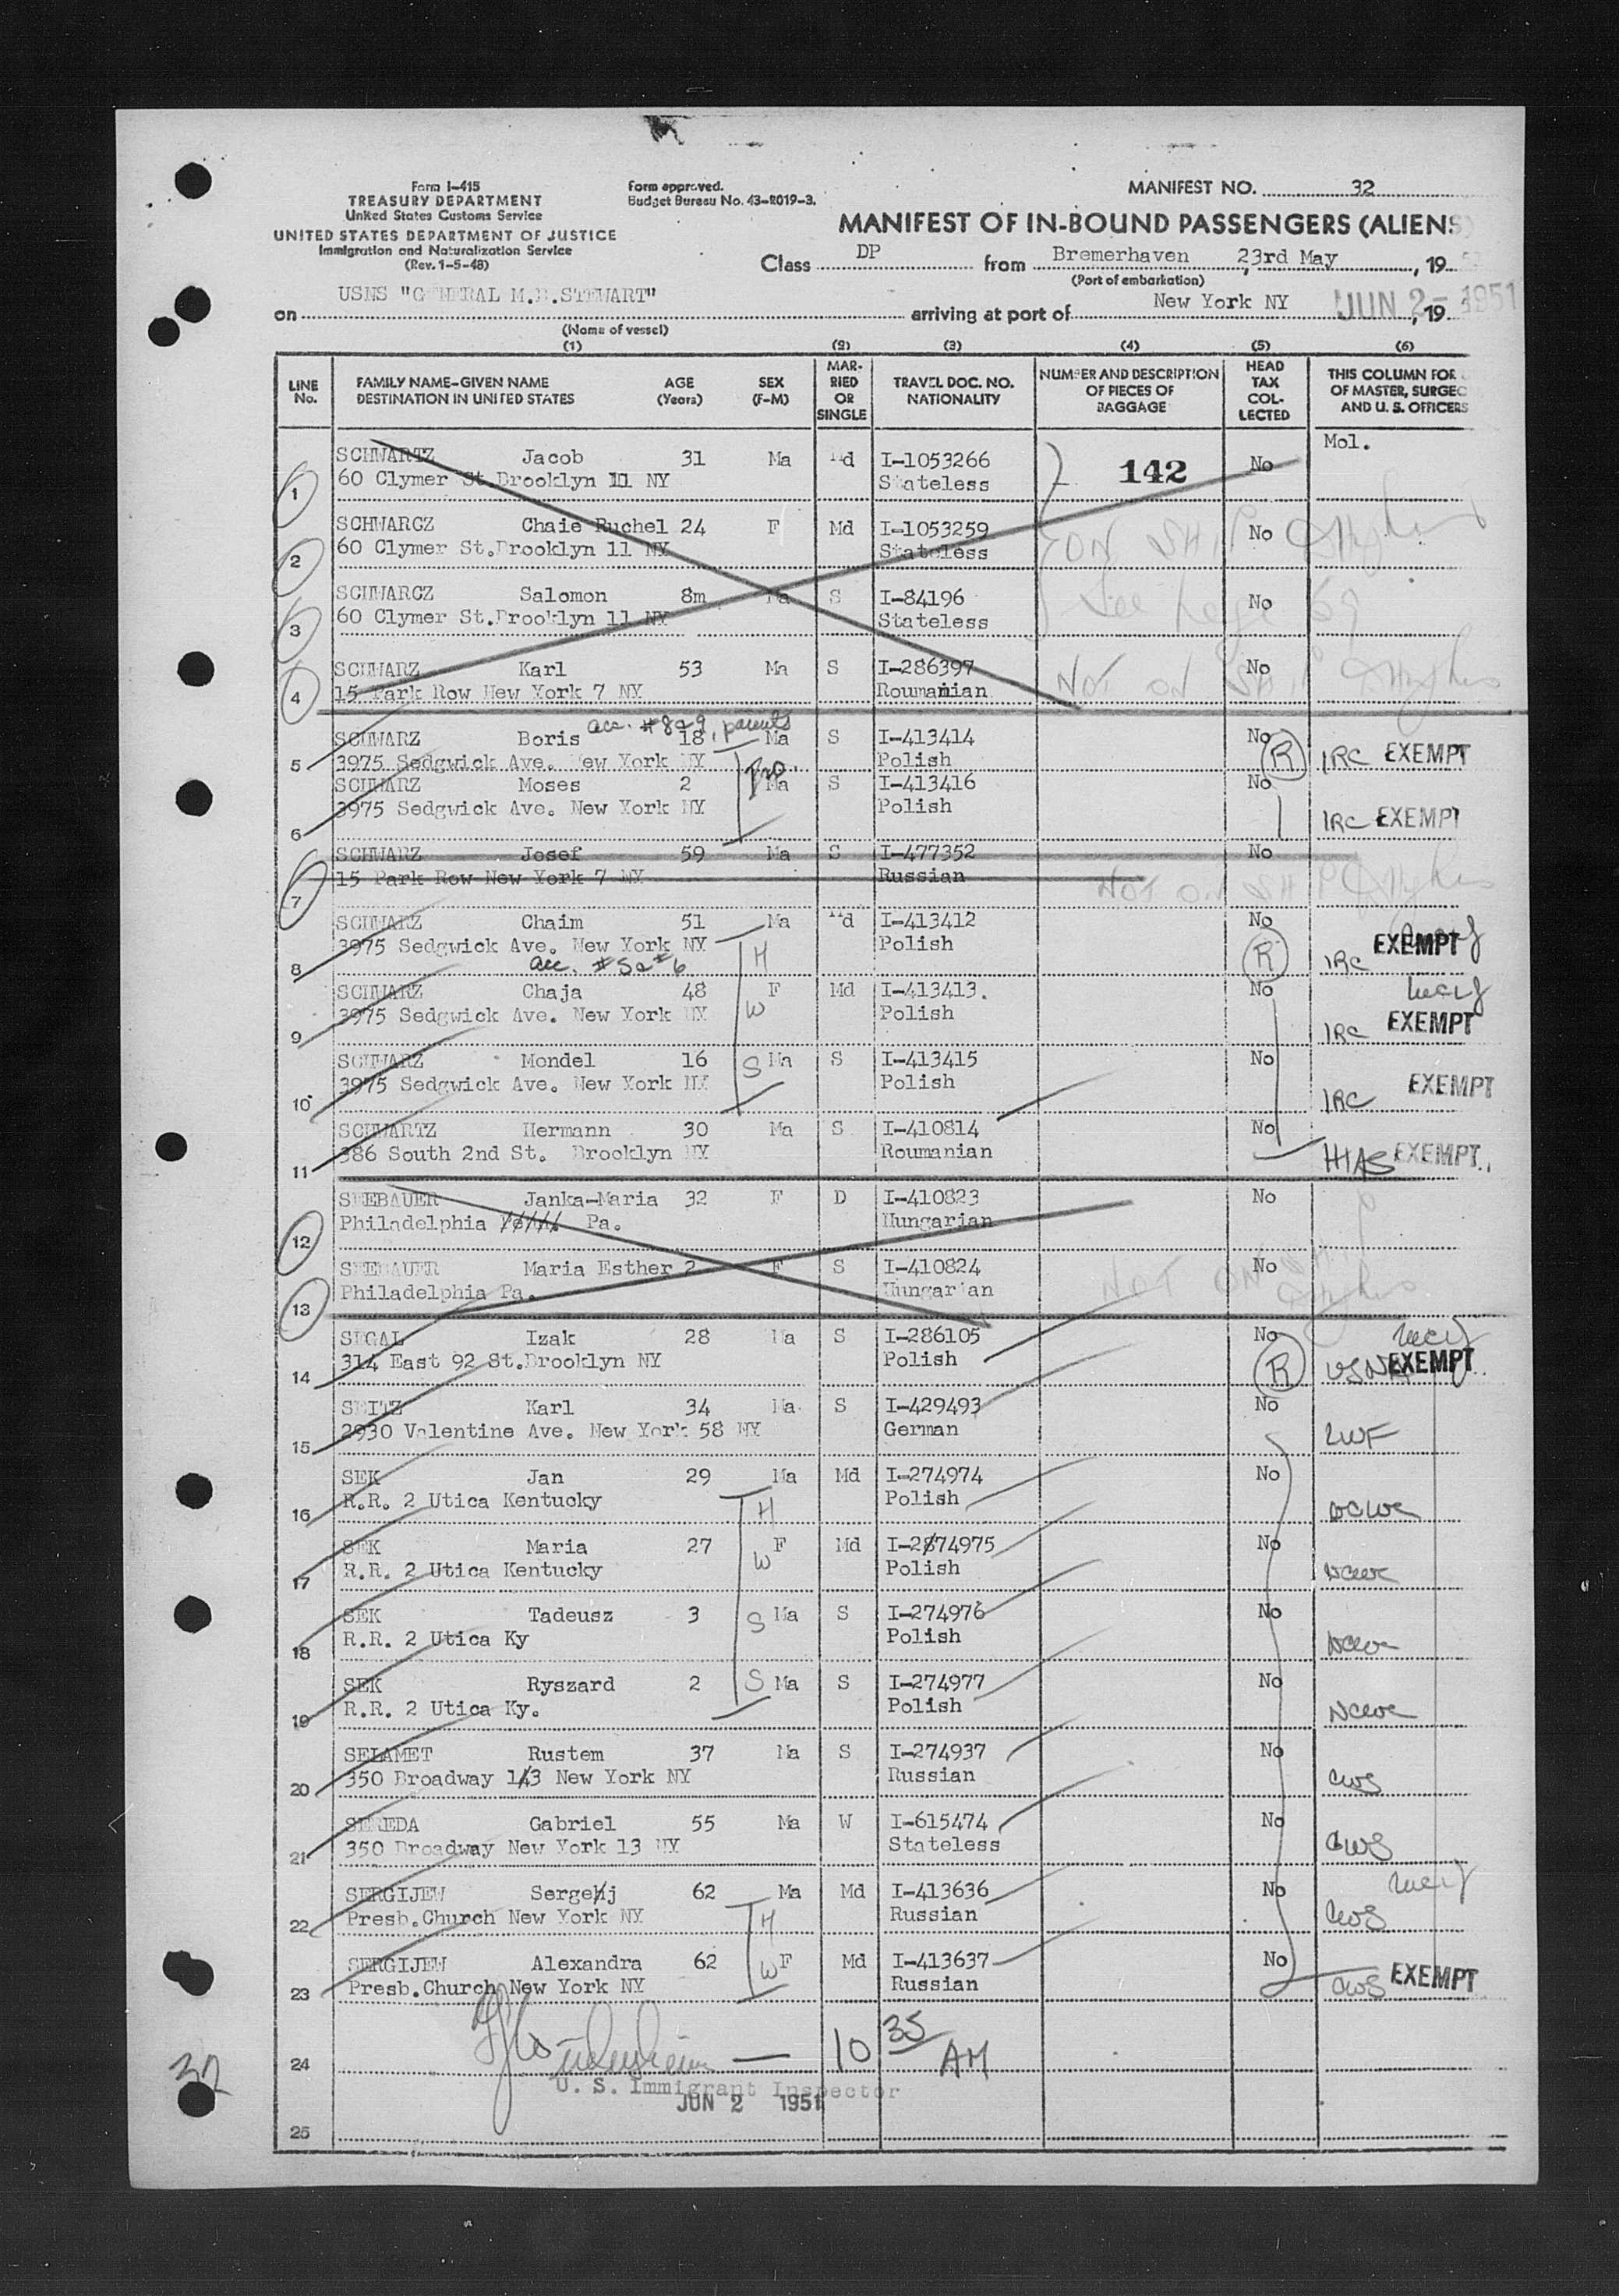 Form I-415
TREASURY DEPARTMENT
United States Customs Service
UNITED STATES DEPARTMENT OF JUSTICE
Immigration and Naturalization Service
(Rev. 1-5-48)
Form approved.
Budget Bureau No. 43-R019-3.
MANIFEST NO. 32
MANIFEST OF IN-BOUND PASSENGERS (ALIENS)
Class DP from Bremerhaven, 23rd May, 19
(Port of embarkation)
on USNS "GENERAL M.B.STEWART" arriving at port of New York NY JUN 2- 1951, 19
(Name of vessel)
(1) (2) (3) (4) (5) (6)
LINE No. FAMILY NAME-GIVEN NAME DESTINATION IN UNITED STATES AGE (Years) SEX (F-M) MARRIED OR SINGLE TRAVEL DOC. NO. NATIONALITY NUMBER AND DESCRIPTION OF PIECES OF BAGGAGE HEAD TAX COLLECTED THIS COLUMN FOR OF MASTER, SURGEO AND U. S. OFFICERS
1 SCHWARTZ Jacob 31 Ma Md I-1053266 142 No Mol.
60 Clymer St.Brooklyn 11 NY Stateless
2 SCHWARCZ Chaie Ruchel 24 F Md I-1053259 No
60 Clymer St.Brooklyn 11 NY Stateless ON SHIP
3 SCHWARCZ Salomon 8m Ma S I-84196 No
60 Clymer St.Brooklyn 11 NY Stateless See page 69
4 SCHWARZ Karl 53 Ma S I-286397 No
15 Park Row New York 7 NY Roumanian NOT ON SHIP
acc. #8&9, parents
5 SCHWARZ Boris 18 Ma S I-413414 No R IRC EXEMPT
3975 Sedgwick Ave. New York NY Polish
6 SCHWARZ Moses 2 Bro. Ma S I-413416 No IRC EXEMPT
3975 Sedgwick Ave. New York NY Polish
7 SCHWARZ Josef 59 Ma S I-477352 No
15 Park Row New York 7 NY Russian NOT ON SHIP
8 SCHWARZ Chaim 51 Ma Md I-413412 No
3975 Sedgwick Ave. New York NY H Polish R IRC EXEMPT
acc. #5&#6
9 SCHWARZ Chaja 48 F Md I-413413. No
3975 Sedgwick Ave. New York NY W Polish IRC EXEMPT
10 SCHWARZ Mondel 16 S Ma S I-413415 No
3975 Sedgwick Ave. New York NY Polish IRC EXEMPT
11 SCHWARTZ Hermann 30 Ma S I-410814 No
386 South 2nd St. Brooklyn NY Roumanian HIAS EXEMPT
12 SEEBAUER Janka-Maria 32 F D I-410823 No
Philadelphia Pa. Hungarian
13 SEEBAUER Maria Esther 2 F S I-410824 No
Philadelphia Pa. Hungarian NOT ON SHIP
14 SEGAL Izak 28 Ma S I-286105 No
314 East 92 St.Brooklyn NY Polish R USNA EXEMPT
15 SEITZ Karl 34 Ma S I-429493 No
2930 Valentine Ave. New York 58 NY German LWF
16 SEK Jan 29 Ma Md I-274974 No
R.R. 2 Utica Kentucky H Polish NCWC
17 SEK Maria 27 F Md I-274975 No
R.R. 2 Utica Kentucky W Polish NCWC
18 SEK Tadeusz 3 S Ma S I-274976 No
R.R. 2 Utica Ky Polish NCWC
19 SEK Ryszard 2 S Ma S I-274977 No
R.R. 2 Utica Ky. Polish NCWC
20 SELAMET Rustem 37 Ma S I-274937 No
350 Broadway 13 New York NY Russian CWS
21 SEREDA Gabriel 55 Ma W I-615474 No
350 Broadway New York 13 NY Stateless CWS
22 SERGIJEW Sergeij 62 Ma Md I-413636 No
Presb.Church New York NY H Russian CWS
23 SERGIJEW Alexandra 62 F Md I-413637 No
Presb.Church New York NY W Russian CWS EXEMPT
24 10 35 AM
U. S. Immigrant Inspector
JUN 2 1951
25
32